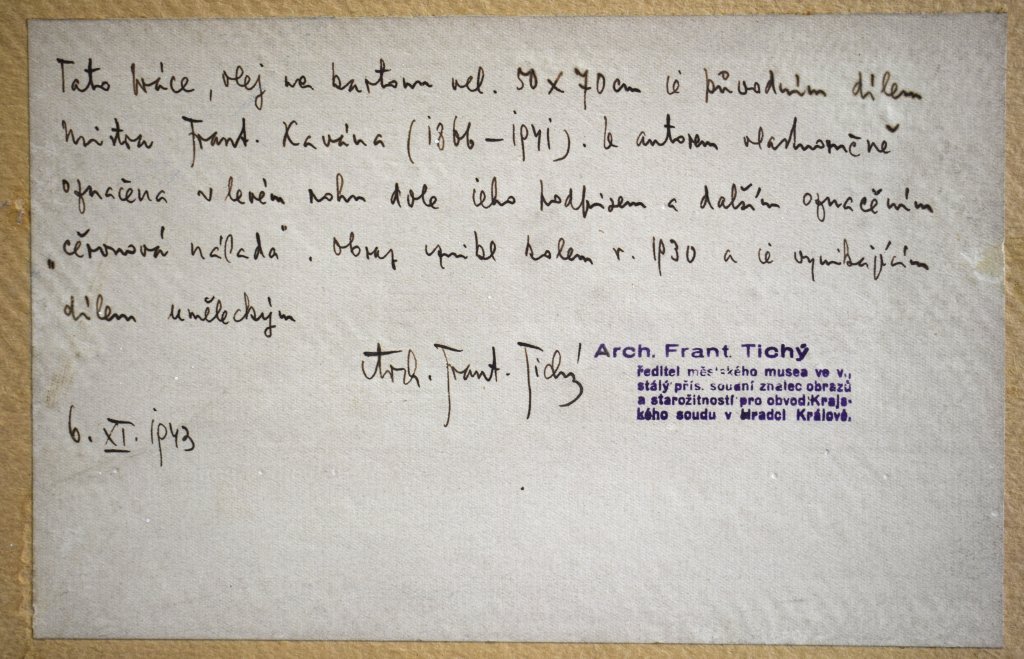 Tato práce, olej na kartonu vel. 50 x 70 cm je původním dílem
mistra Frant. Kavána (1866 – 1941). Je autorem vlastnoručně
označena v levém rohu dole jeho podpisem a dalším označením
„červnová nálada". Obraz vznikl kolem r. 1930 a je vynikajícím
dílem uměleckým
Arch. Frant. Tichý
Arch. Frant. Tichý
ředitel městského musea ve v.,
stálý přís. soudní znalec obrazů
a starožitností pro obvod Kraj-
ského soudu v Hradci Králové.
6. XI. 1943